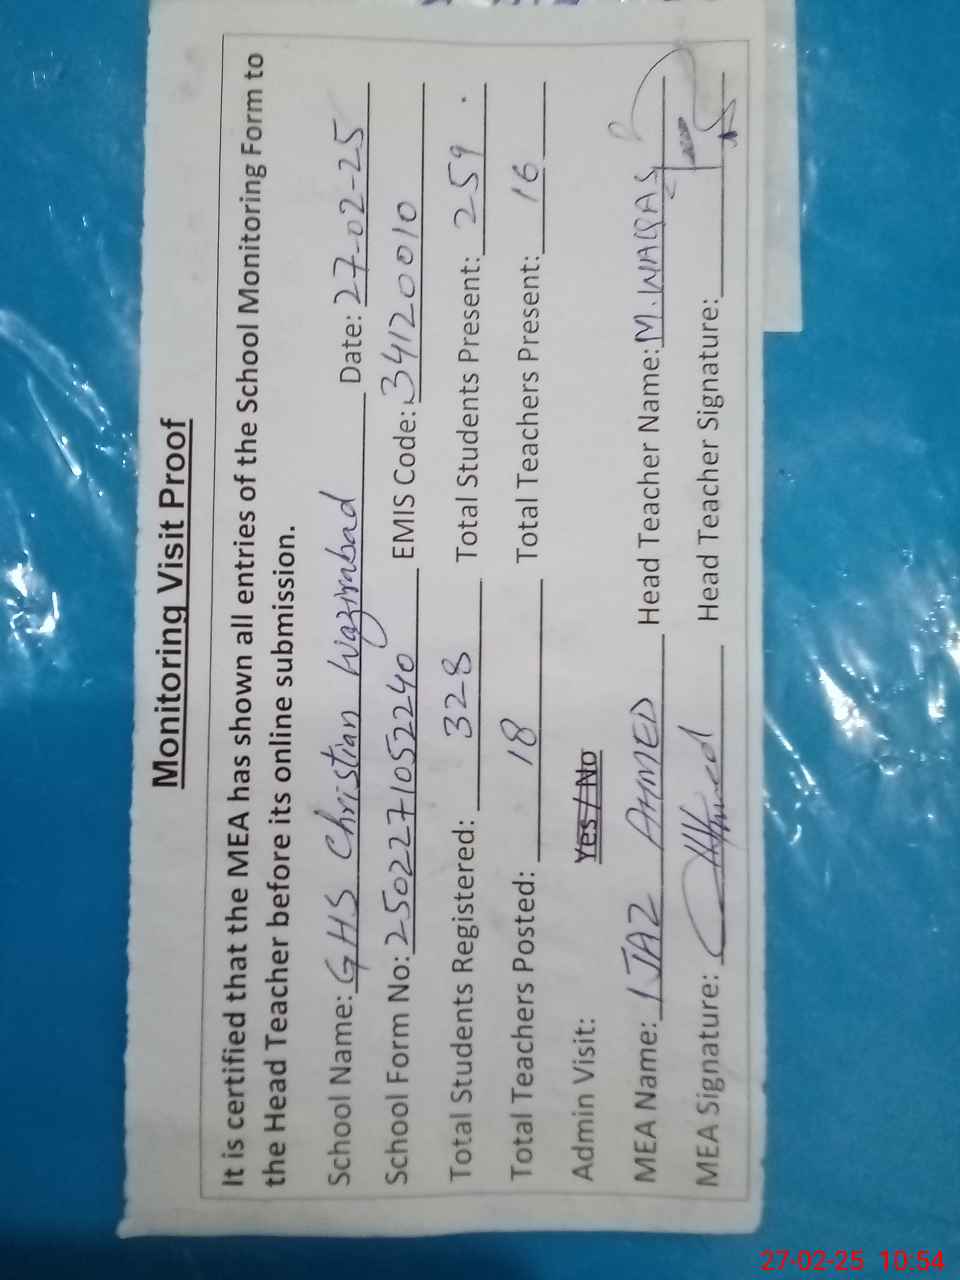 Monitoring Visit Proof
It is certified that the MEA has shown all entries of the School Monitoring Form to
the Head Teacher before its online submission.
School Name: GHS Christian Wazirabad Date: 27-02-25
School Form No: 2502271052240 EMIS Code: 34120010
Total Students Registered: 328 Total Students Present: 259
Total Teachers Posted: 18 Total Teachers Present: 16
Admin Visit: Yes / No
MEA Name: IJAZ AHMED Head Teacher Name: M. WAQAS
MEA Signature: Head Teacher Signature:
27-02-25 10:54